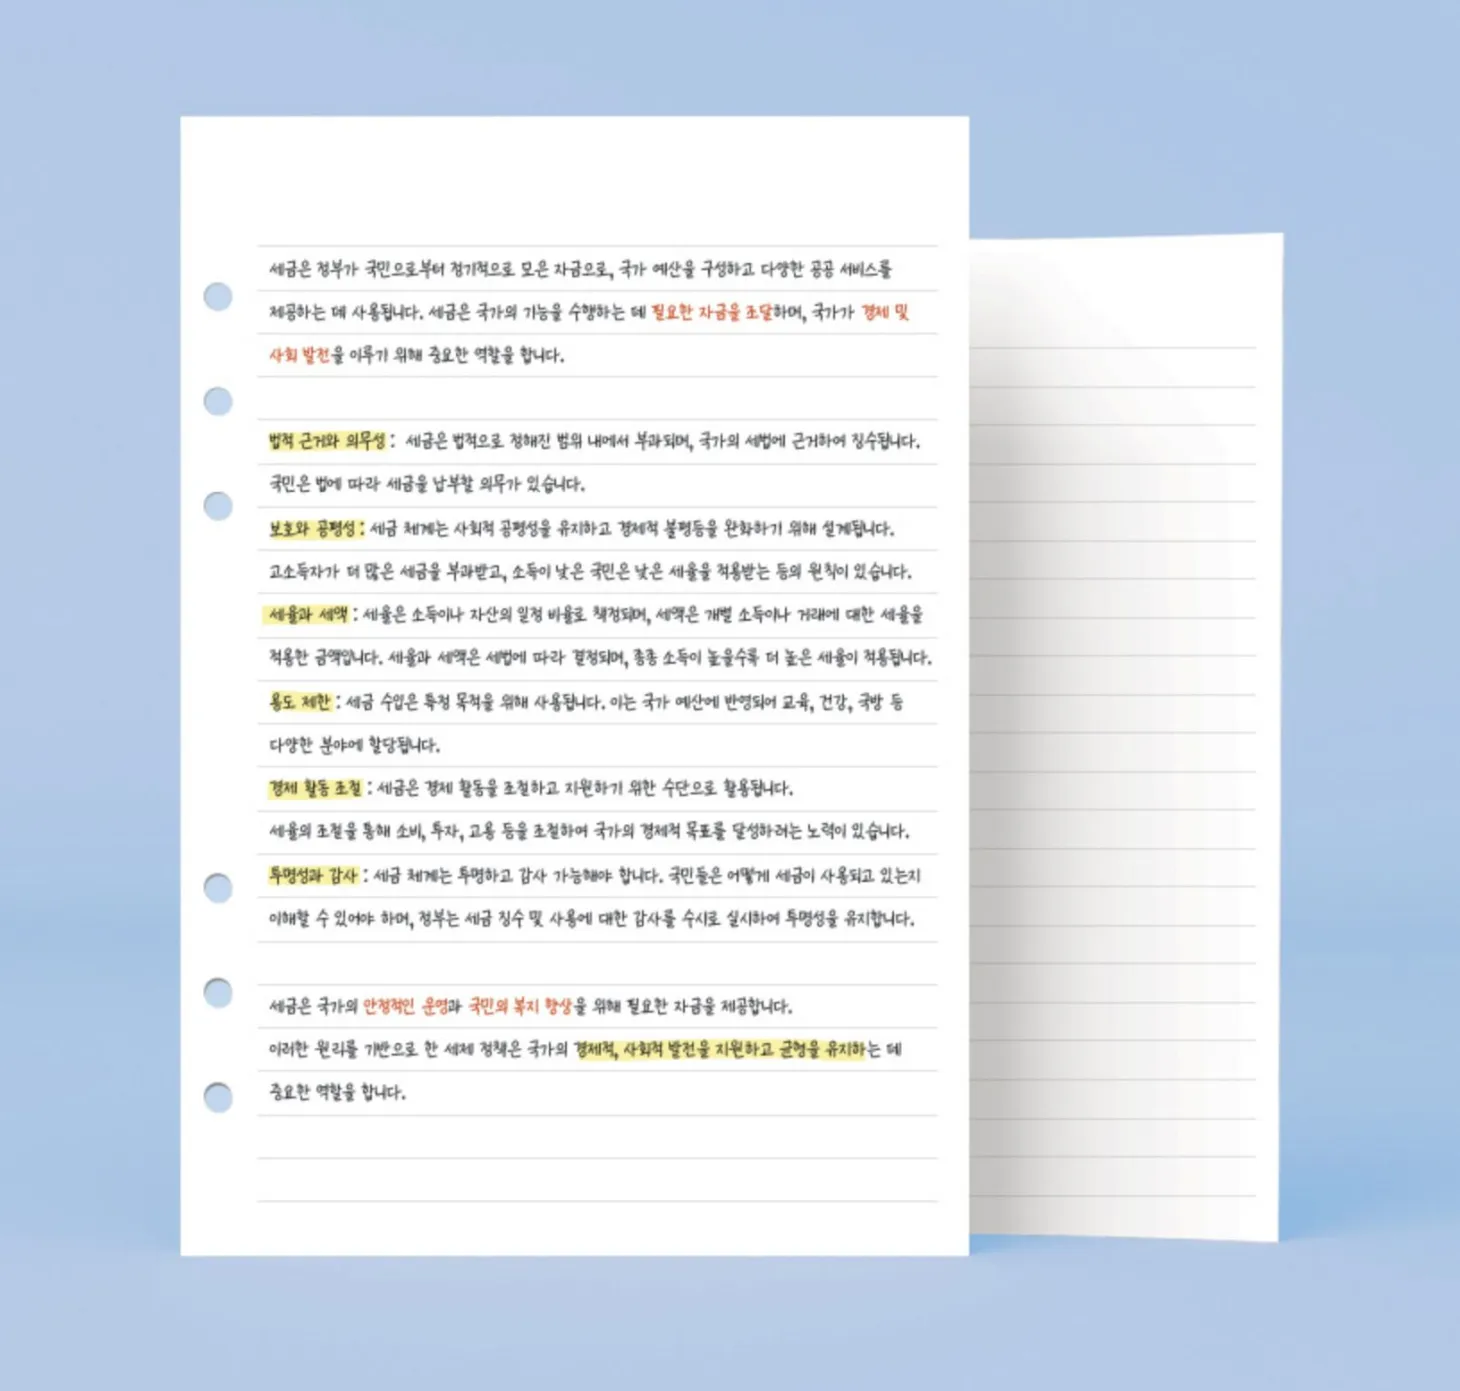 세금은 정부가 국민으로부터 정기적으로 모은 자금으로, 국가 예산을 구성하고 다양한 공공 서비스를
제공하는 데 사용됩니다. 세금은 국가의 기능을 수행하는 데 필요한 자금을 조달하며, 국가가 경제 및
사회 발전을 이루기 위해 중요한 역할을 합니다.
법적 근거와 의무성 : 세금은 법적으로 정해진 범위 내에서 부과되며, 국가의 세법에 근거하여 징수됩니다.
국민은 법에 따라 세금을 납부할 의무가 있습니다.
보호와 공평성 : 세금 체계는 사회적 공평성을 유지하고 경제적 불평등을 완화하기 위해 설계됩니다.
고소득자가 더 많은 세금을 부과받고, 소득이 낮은 국민은 낮은 세율을 적용받는 등의 원칙이 있습니다.
세율과 세액 : 세율은 소득이나 자산의 일정 비율로 책정되며, 세액은 개별 소득이나 거래에 대한 세율을
적용한 금액입니다. 세율과 세액은 세법에 따라 결정되며, 종종 소득이 높을수록 더 높은 세율이 적용됩니다.
용도 제한 : 세금 수입은 특정 목적을 위해 사용됩니다. 이는 국가 예산에 반영되어 교육, 건강, 국방 등
다양한 분야에 할당됩니다.
경제 활동 조절 : 세금은 경제 활동을 조절하고 지원하기 위한 수단으로 활용됩니다.
세율의 조절을 통해 소비, 투자, 고용 등을 조절하여 국가의 경제적 목표를 달성하려는 노력이 있습니다.
투명성과 감사 : 세금 체계는 투명하고 감사 가능해야 합니다. 국민들은 어떻게 세금이 사용되고 있는지
이해할 수 있어야 하며, 정부는 세금 징수 및 사용에 대한 감사를 수시로 실시하여 투명성을 유지합니다.
세금은 국가의 안정적인 운영과 국민의 복지 향상을 위해 필요한 자금을 제공합니다.
이러한 원리를 기반으로 한 세제 정책은 국가의 경제적, 사회적 발전을 지원하고 균형을 유지하는 데
중요한 역할을 합니다.